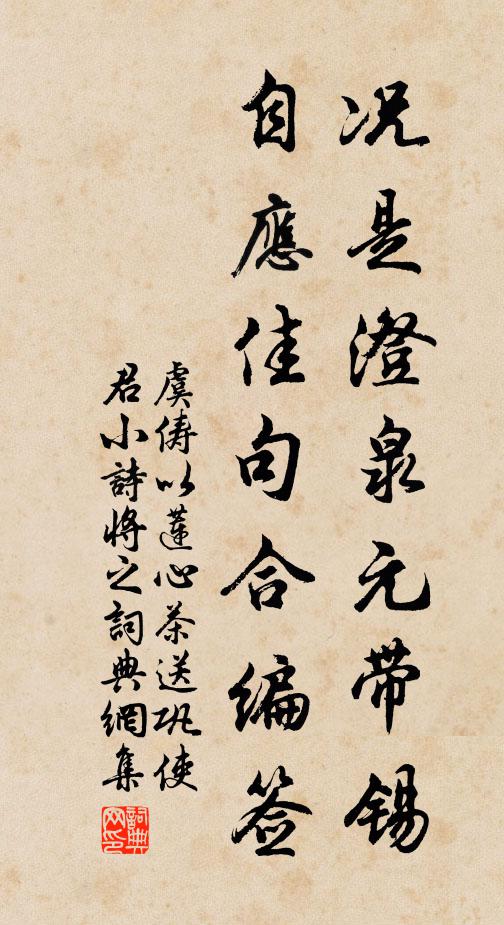 况是澄泉元带锡
自應佳句合編签
虞俦以蓮心茶送巩使
君小詩将之詞典網集
詞典网印